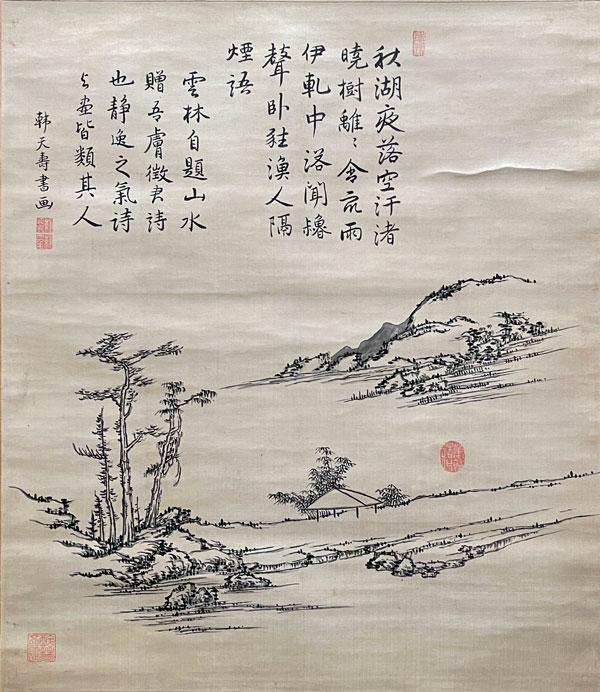 秋湖夜落空江渚
曉樹離〻含宿雨
伊軋中流聞櫓
聲卧聽漁人隔
煙語
雲林自題山水
贈吾膚徵君詩
也静逸之氣詩
与畫皆類其人
韩天壽書画